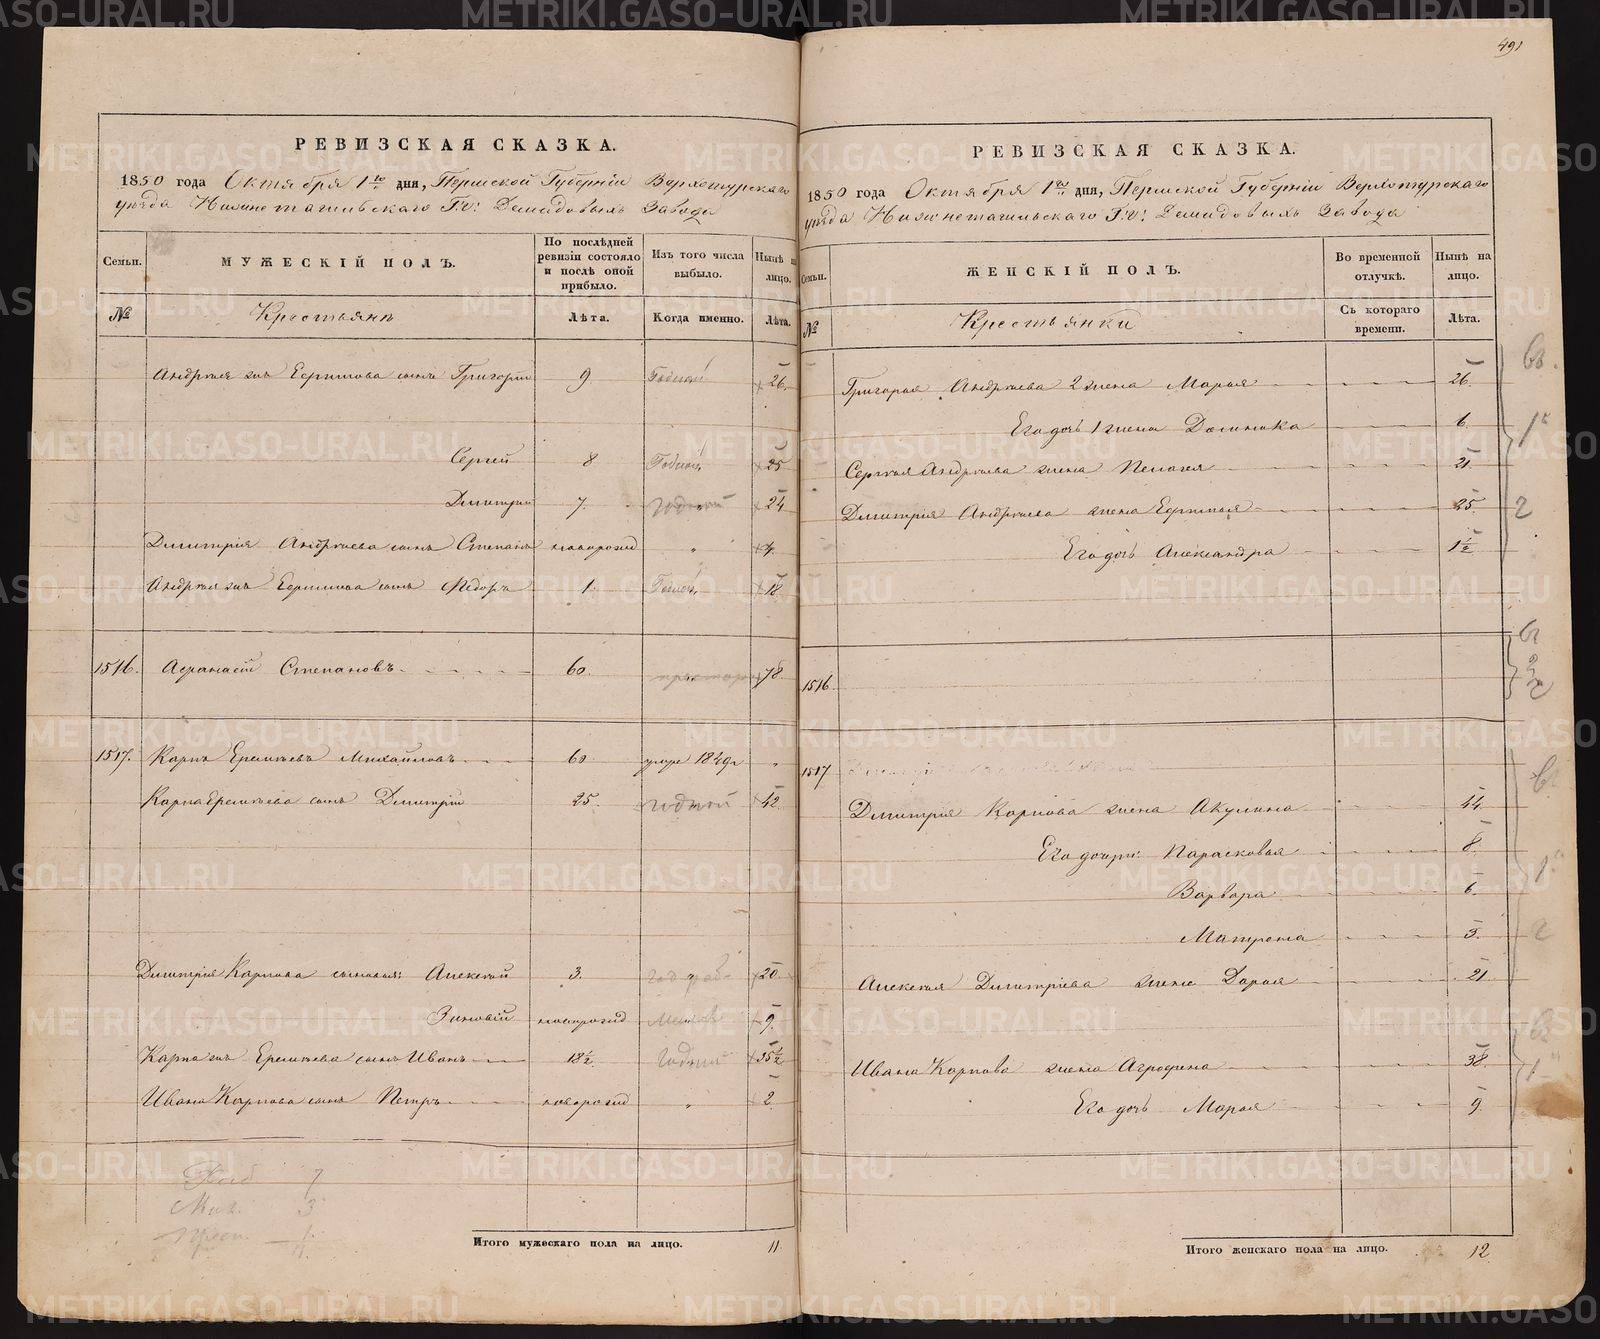 491
РЕВИЗСКАЯ СКАЗКА.
1850 года Октября 1го дня, Пермской Губерніи Верхотурскаго
уѣзда Нижнетагильскаго Г.г: Демидовыхъ Завода
Семьи. МУЖЕСКІЙ ПОЛЪ. По послѣдней ревизіи состояло и послѣ оной прибыло. Изъ того числа выбыло. Нынѣ на лицо.
№ Крестьянъ Лѣта. Когда именно. Лѣта.
Андрея Ефимова сынъ Григорій 9 Годной 26.
Сергей 8 Годной 25
Дмитрій 7. годной 24
Дмитрія Андреева сынъ Степанъ новорожд „
Андрея Ефимова сынъ Ѳедоръ 1. Годной 18
1516. Афанасій Степановъ 60. 78
1517. Карпъ Еремѣевъ Михайловъ 60 умре 1849г „
Карпа Еремѣева сынъ Дмитрій 25. годной 42
Дмитрія Карпова сыновья: Алексей 3. 20
Зиновій новорожд 9.
Карпа Еремѣева сынъ Иванъ 18½ Годной 35½
Ивана Карпова сынъ Петръ новорожд „ 2.
7
Мал. 3
Итого мужескаго пола на лицо. 11.
РЕВИЗСКАЯ СКАЗКА.
1850 года Октября 1го дня, Пермской Губерніи Верхотурскаго
уѣзда Нижнетагильскаго Г.г: Демидовыхъ Завода
Семьи. ЖЕНСКІЙ ПОЛЪ. Во временной отлучкѣ. Нынѣ на лицо.
№ Крестьянки Съ котораго времени. Лѣта.
Григорья Андреева 2 жена Марья 26.
Его дочь 1 жены Домника 6.
Сергея Андреева жена Пелагея 21.
Дмитрія Андреева жена Ефимья 25.
Его дочь Александра 1½
1516
1517
Дмитрія Карпова жена Акулина 44.
Его дочери: Парасковья 8.
Варвара 6.
Матрена 3.
Алексея Дмитріева жена Дарья 21
Ивана Карпова жена Агрофена 38.
Его дочь Марья 9.
Итого женскаго пола на лицо. 12
METRIKI.GASO-URAL.RU